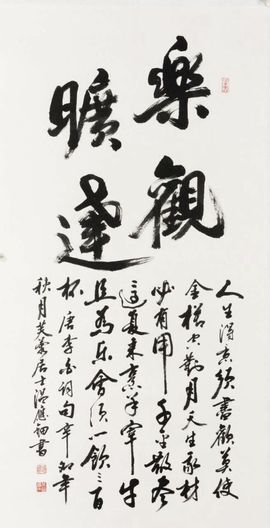 樂觀
曠達
人生得意須盡歡莫使
金樽空對月天生我材
必有用千金散盡
還復來烹羊宰牛
且為樂會須一飲三百
杯唐李白詞句辛卯年
秋月芙蓉居士温應書